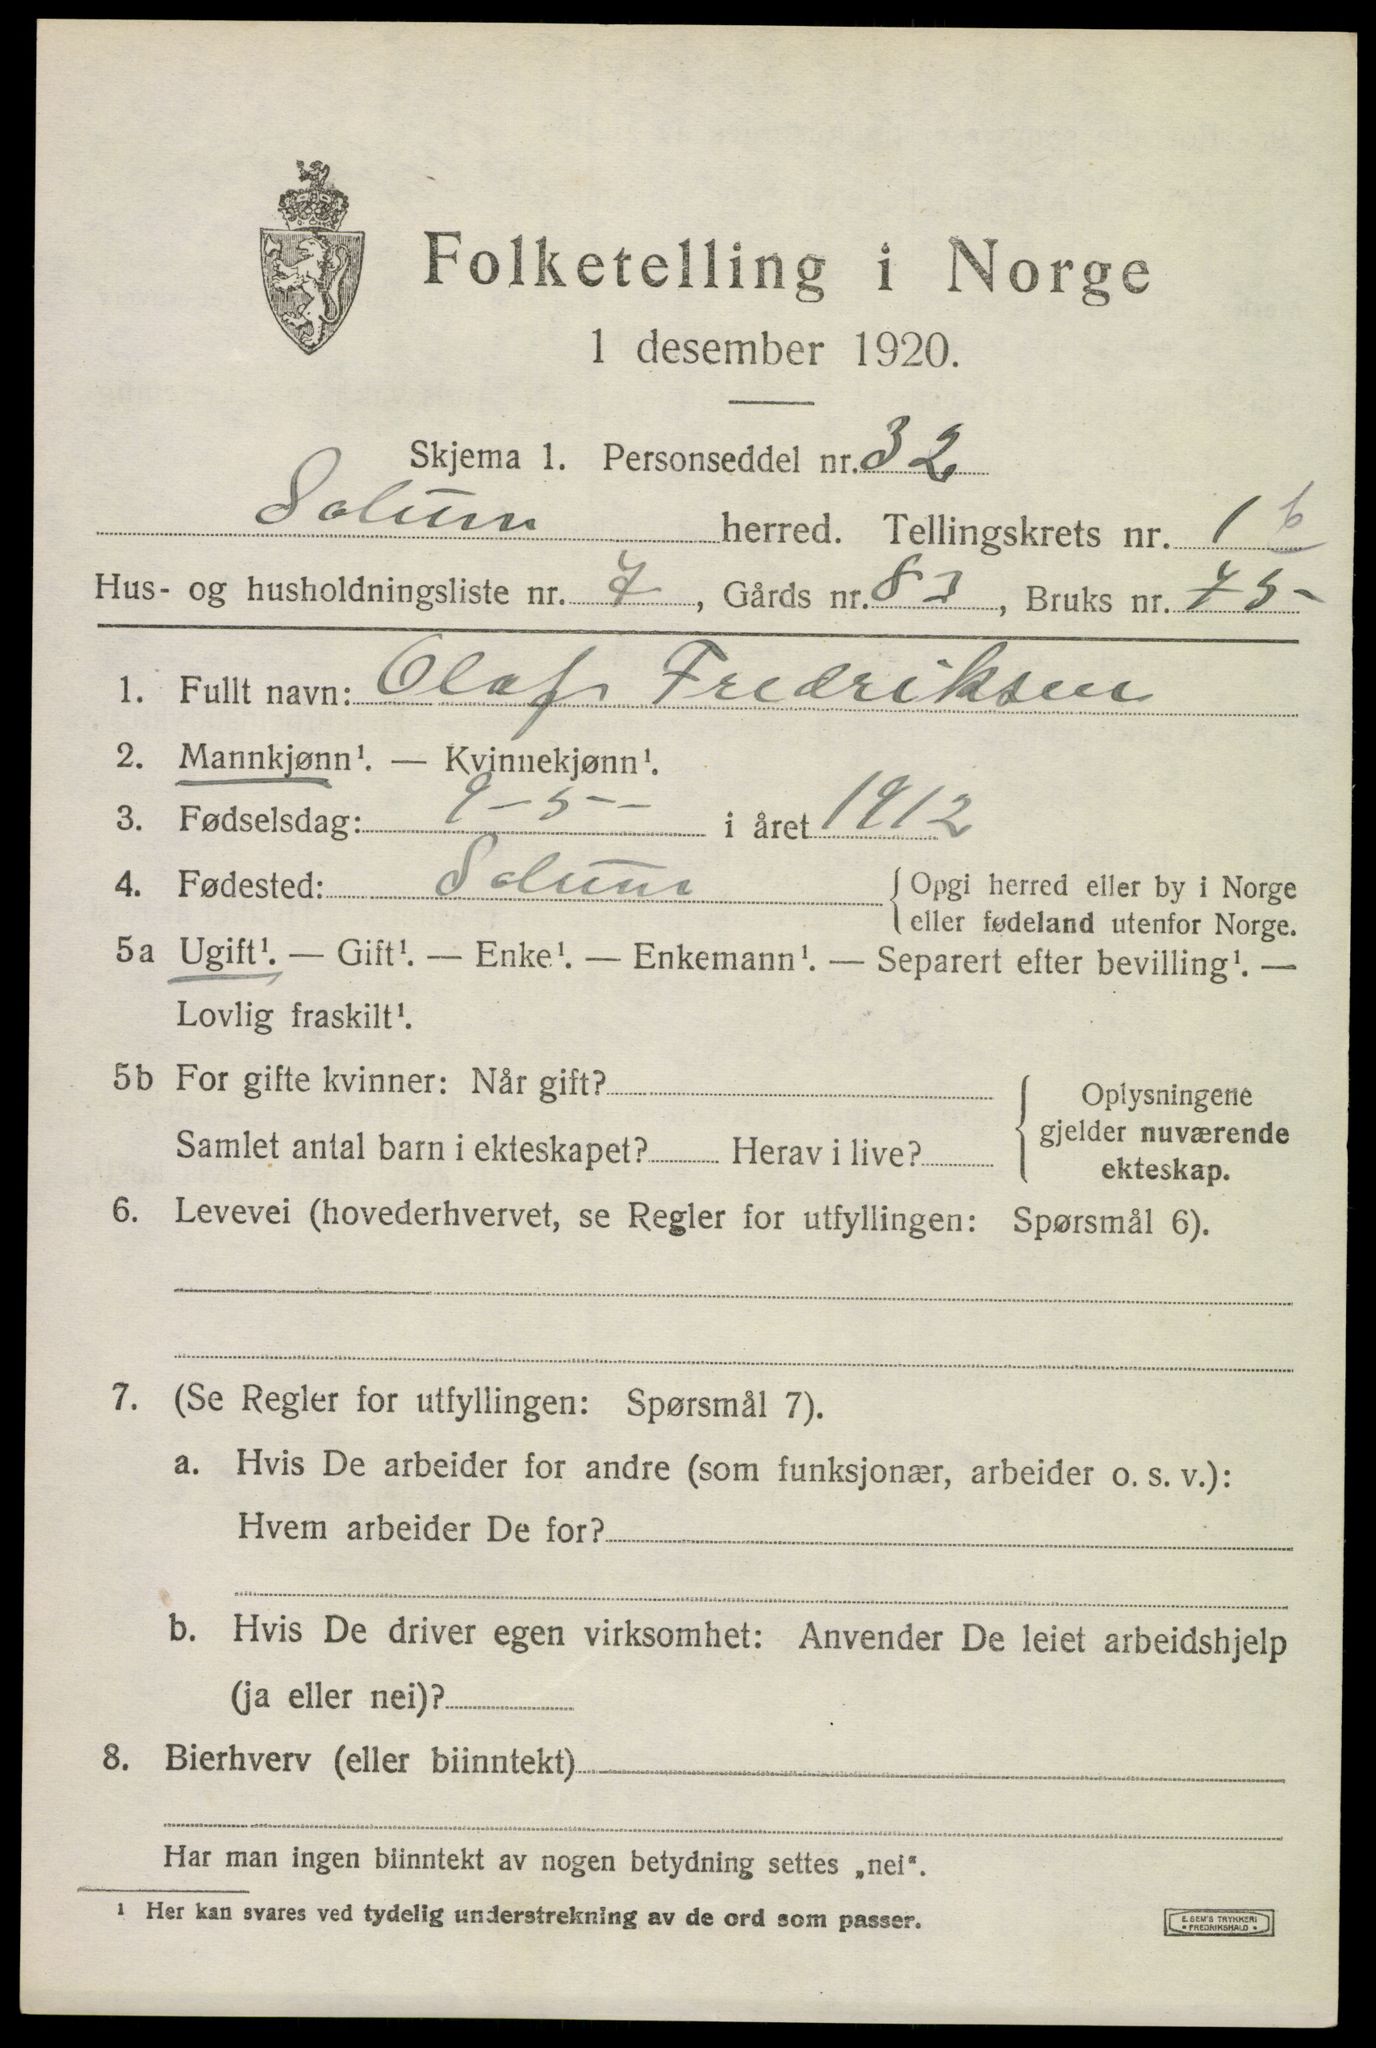 Folketelling i Norge
1 desember 1920.
Skjema 1. Personseddel nr. 32
Solum herred. Tellingskrets nr. 1 b
Hus- og husholdningsliste nr. 7, Gårds nr. 83, Bruks nr. 75
1. Fullt navn: Olaf Fredriksen
2. Mannkjønn¹. — Kvinnekjønn¹.
3. Fødselsdag: 9-5- i året 1912
4. Fødested: Solum { Opgi herred eller by i Norge
eller fødeland utenfor Norge.
5a Ugift¹. — Gift¹. — Enke¹. — Enkemann¹. — Separert efter bevilling¹. —
Lovlig fraskilt¹.
5b For gifte kvinner: Når gift?
Samlet antal barn i ekteskapet? Herav i live?
{ Oplysningene
gjelder nuværende
ekteskap.
6. Levevei (hovederhvervet, se Regler for utfyllingen: Spørsmål 6).
7. (Se Regler for utfyllingen: Spørsmål 7).
a. Hvis De arbeider for andre (som funksjonær, arbeider o. s. v.):
Hvem arbeider De for?
b. Hvis De driver egen virksomhet: Anvender De leiet arbeidshjelp
(ja eller nei)?
8. Bierhverv (eller biinntekt)
Har man ingen biinntekt av nogen betydning settes „nei“.
¹ Her kan svares ved tydelig understrekning av de ord som passer.
E. SEM'S TRYKKERI
• FREDRIKSHALD •